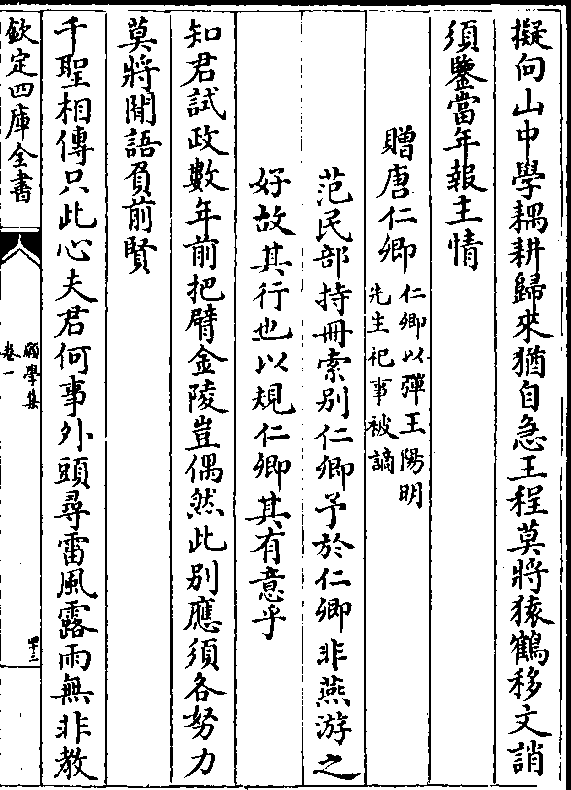 擬向山中學耦耕歸來猶自急王程莫將猿鶴移文誚
須鑒當年報主情
贈唐仁卿仁卿以彈王陽明
先生祀事被謫
范民部持冊索别仁卿予於仁卿非燕游之
好故其行也以規仁卿其有意乎
知君試政數年前把臂金陵豈偶然此别應須各努力
莫將閒語負前賢
千聖相傳只此心夫君何事外頭尋雷風露雨無非教
欽定四庫全書
願學集
卷一
四十三